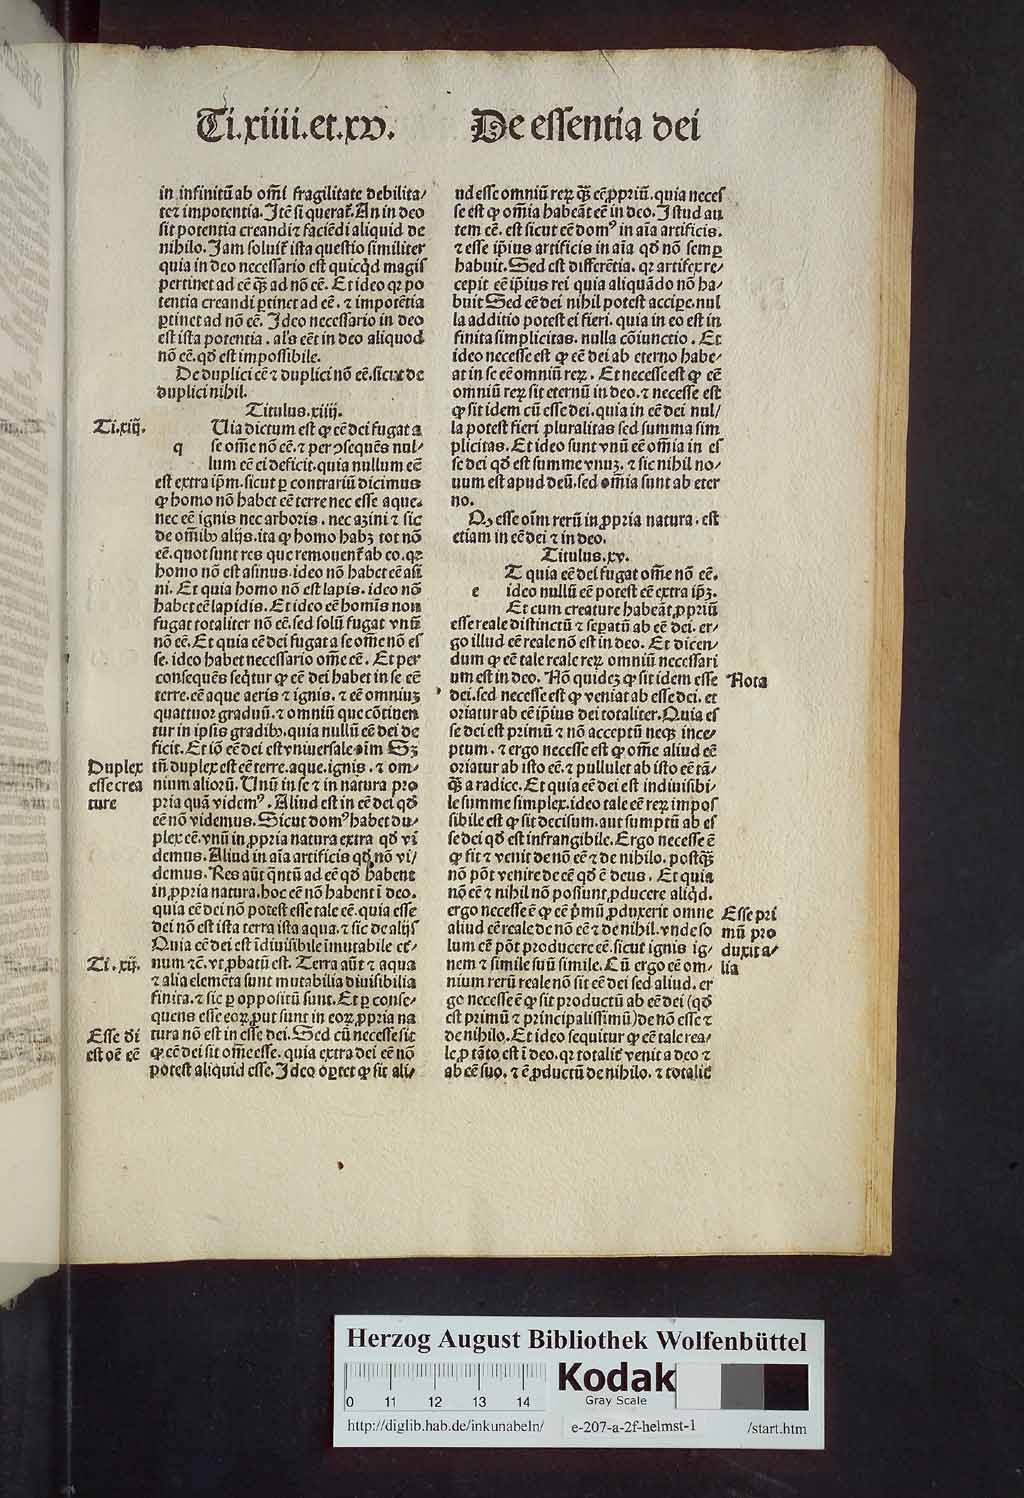 Ti.xiiii.et.xv. De essentia dei
in infinitū ab om̄i fragilitate debilita/
te ⁊ impotentia. Itē si querat̄. An in deo
sit potentia creandi ⁊ faciēdi aliquid de
nihilo. Jam soluit̄ ista questio similiter
quia in deo necessario est quicq̇d magis
pertinet ad eē q̄ȝ ad nō eē. Et ideo qꝛ po
tentia creandi ꝑtinet ad eē. ⁊ impotētia
ꝑtinet ad nō eē. Ideo necessario in deo
est ista potentia. als̄ eēt in deo aliquod
nō eē. qđ est impossibile.
De duplici eē ⁊ duplici nō eē. sicut de
duplici nihil.
Titulus.xiiij.
Ti.xiij.
Uia dictum est ꝙ eē dei fugat a
q se om̄e nō eē. ⁊ per ꝯsequēs nul/
lum eē ei deficit. quia nullum eē
est extra ip̄m. sicut ꝑ contrariū dicimus
ꝙ homo nō habet eē terre nec esse aque.
nec eē ignis nec arboris. nec azini ⁊ sic
de om̄ibꝰ alijs. ita ꝙ homo habȝ tot nō
eē. quot sunt res que remouent̄ ab eo. qꝛ
homo nō est asinus. ideo nō habet eē asi
ni. Et quia homo nō est lapis. ideo nō
habet eē lapidis. Et ideo eē hominis non
fugat totaliter nō eē. sed solū fugat vnū
nō eē. Et quia eē dei fugat a se om̄e nō es
se. ideo habet necessario om̄e eē. Et per
consequēs seq̄tur ꝙ eē dei habet in se eē
terre. eē aque aeris ⁊ ignis. ⁊ eē omniuȝ
quattuor graduū. ⁊ omniū que cōtinen
tur in ipsis gradibꝰ. quia nullū eē dei de
ficit. Et iō eē dei est vniuersale oīm Sȝ
Duplex
esse crea
ture
tn̄ duplex est eē terre. aque. ignis. ⁊ om/
nium aliorū. Unū in se ⁊ in natura pro
pria quā videmꝰ. Aliud est in eē dei qđ
eē nō videmus. Sicut domꝰ habet du/
plex eē. vnū in ꝓpria natura extra qđ vi
demus. Aliud in aīa artificis qđ nō vi/
demus. Res aūt q̄ntū ad eē qđ habent
in ꝓpria natura. hoc eē nō habent ī deo.
quia eē dei nō potest esse tale eē. quia esse
dei nō est ista terra ista aqua. ⁊ sic de alijs
Quia eē dei est īdiuisibile īmutabile et/
Ti.xij.
num ⁊c̄. vt ꝓbatū est. Terra aūt ⁊ aqua
⁊ alia elemēta sunt mutabilia diuisibilia
finita. ⁊ sic ꝑ oppositū sunt. Et ꝑ conse/
quens esse eoꝝ put sunt in eoꝝ ꝓpria na
Esse di
est oē eē
tura nō est in esse dei. Sed cū necesse sit
ꝙ eē dei sit om̄e esse. quia extra dei eē nō
potest aliquid esse. Ideo oꝑtet ꝙ sit ali/
ud esse omniū reꝝ q̄ȝ eē ꝓpriū. quia neces
se est ꝙ om̄ia habeāt eē in deo. Istud au
tem eē. est sicut eē domꝰ in aīa artificis.
⁊ esse ip̄ius artificis in aīa qđ nō semꝑ
habuit. Sed est differētia. qꝛ artifex re/
cepit eē ip̄ius rei quia aliquādo nō ha/
buit Sed eē dei nihil potest accipe. nul
la additio potest ei fieri. quia in eo est in
finita simplicitas. nulla cōiunctio. Et
ideo necesse est ꝙ eē dei ab eterno habe/
at in se eē omniū reꝝ. Et necesse est ꝙ eē
omniū reꝝ sit eternū in deo. ⁊ necesse est
ꝙ sit idem cū esse dei. quia in eē dei nul/
la potest fieri pluralitas sed summa sim
plicitas. Et ideo sunt vnū eē om̄ia in es
se dei qđ est summe vnuȝ. ⁊ sic nihil no/
uum est apud deū. sed om̄ia sunt ab eter
no.
Qꝙ esse oīm rerū in ꝓpria natura. est
etiam in eē dei ⁊ in deo.
Titulus.xv.
T quia eē dei fugat om̄e nō eē.
e ideo nullū eē potest eē extra ip̄ȝ.
Et cum creature habeāt ꝓpriū
esse reale distinctū ⁊ sepatū ab eē dei. er/
go illud eē reale nō est in deo. Et dicen/
dum ꝙ eē tale reale reꝝ omniū necessari
um est in deo. Nō quidez ꝙ sit idem esse
Nota
dei. sed necesse est ꝙ veniat ab esse dei. et
oriatur ab eē ip̄ius dei totaliter. Quia es
se dei est primū ⁊ nō acceptū neqȝ ince/
ptum. ⁊ ergo necesse est ꝙ om̄e aliud eē
oriatur ab isto eē. ⁊ pullulet ab isto eē tā/
q̄ȝ a radice. Et quia eē dei est indiuisibi/
le summe simplex. ideo tale eē reꝝ impos
sibile est ꝙ sit decisum. aut sumptū ab es
se dei qđ est infrangibile. Ergo necesse ē
ꝙ sit ⁊ venit de nō eē ⁊ de nihilo. postq̄ȝ
nō pōt venire de eē qđ ē deus. Et quia
nō eē ⁊ nihil nō possunt ꝓducere aliq̇d.
ergo necesse ē ꝙ eē p̄mū ꝓduxerit omne
Esse pri
mū pro
duxit a/
lia
aliud eē reale de nō eē ⁊ de nihil. vnde so
lum eē pōt producere eē. sicut ignis ig/
nem ⁊ simile suū simile. Cū ergo eē om/
nium rerū reale nō sit eē dei sed aliud. er
go necesse ē ꝙ sit productū ab eē dei (qđ
est primū ⁊ principalissimū) de nō esse ⁊
de nihilo. Et ideo sequitur ꝙ eē tale rea/
le, ꝓ tāto est ī deo. qꝛ totalit̄ venit a deo ⁊
ab eē suo. ⁊ ē ꝓductū de nihilo. ⁊ totalit̄
Herzog August Bibliothek Wolfenbüttel
0 11 12 13 14
Kodak
Gray Scale
http://diglib.hab.de/inkunabeln/ e-207-a-2f-helmst-1 /start.htm